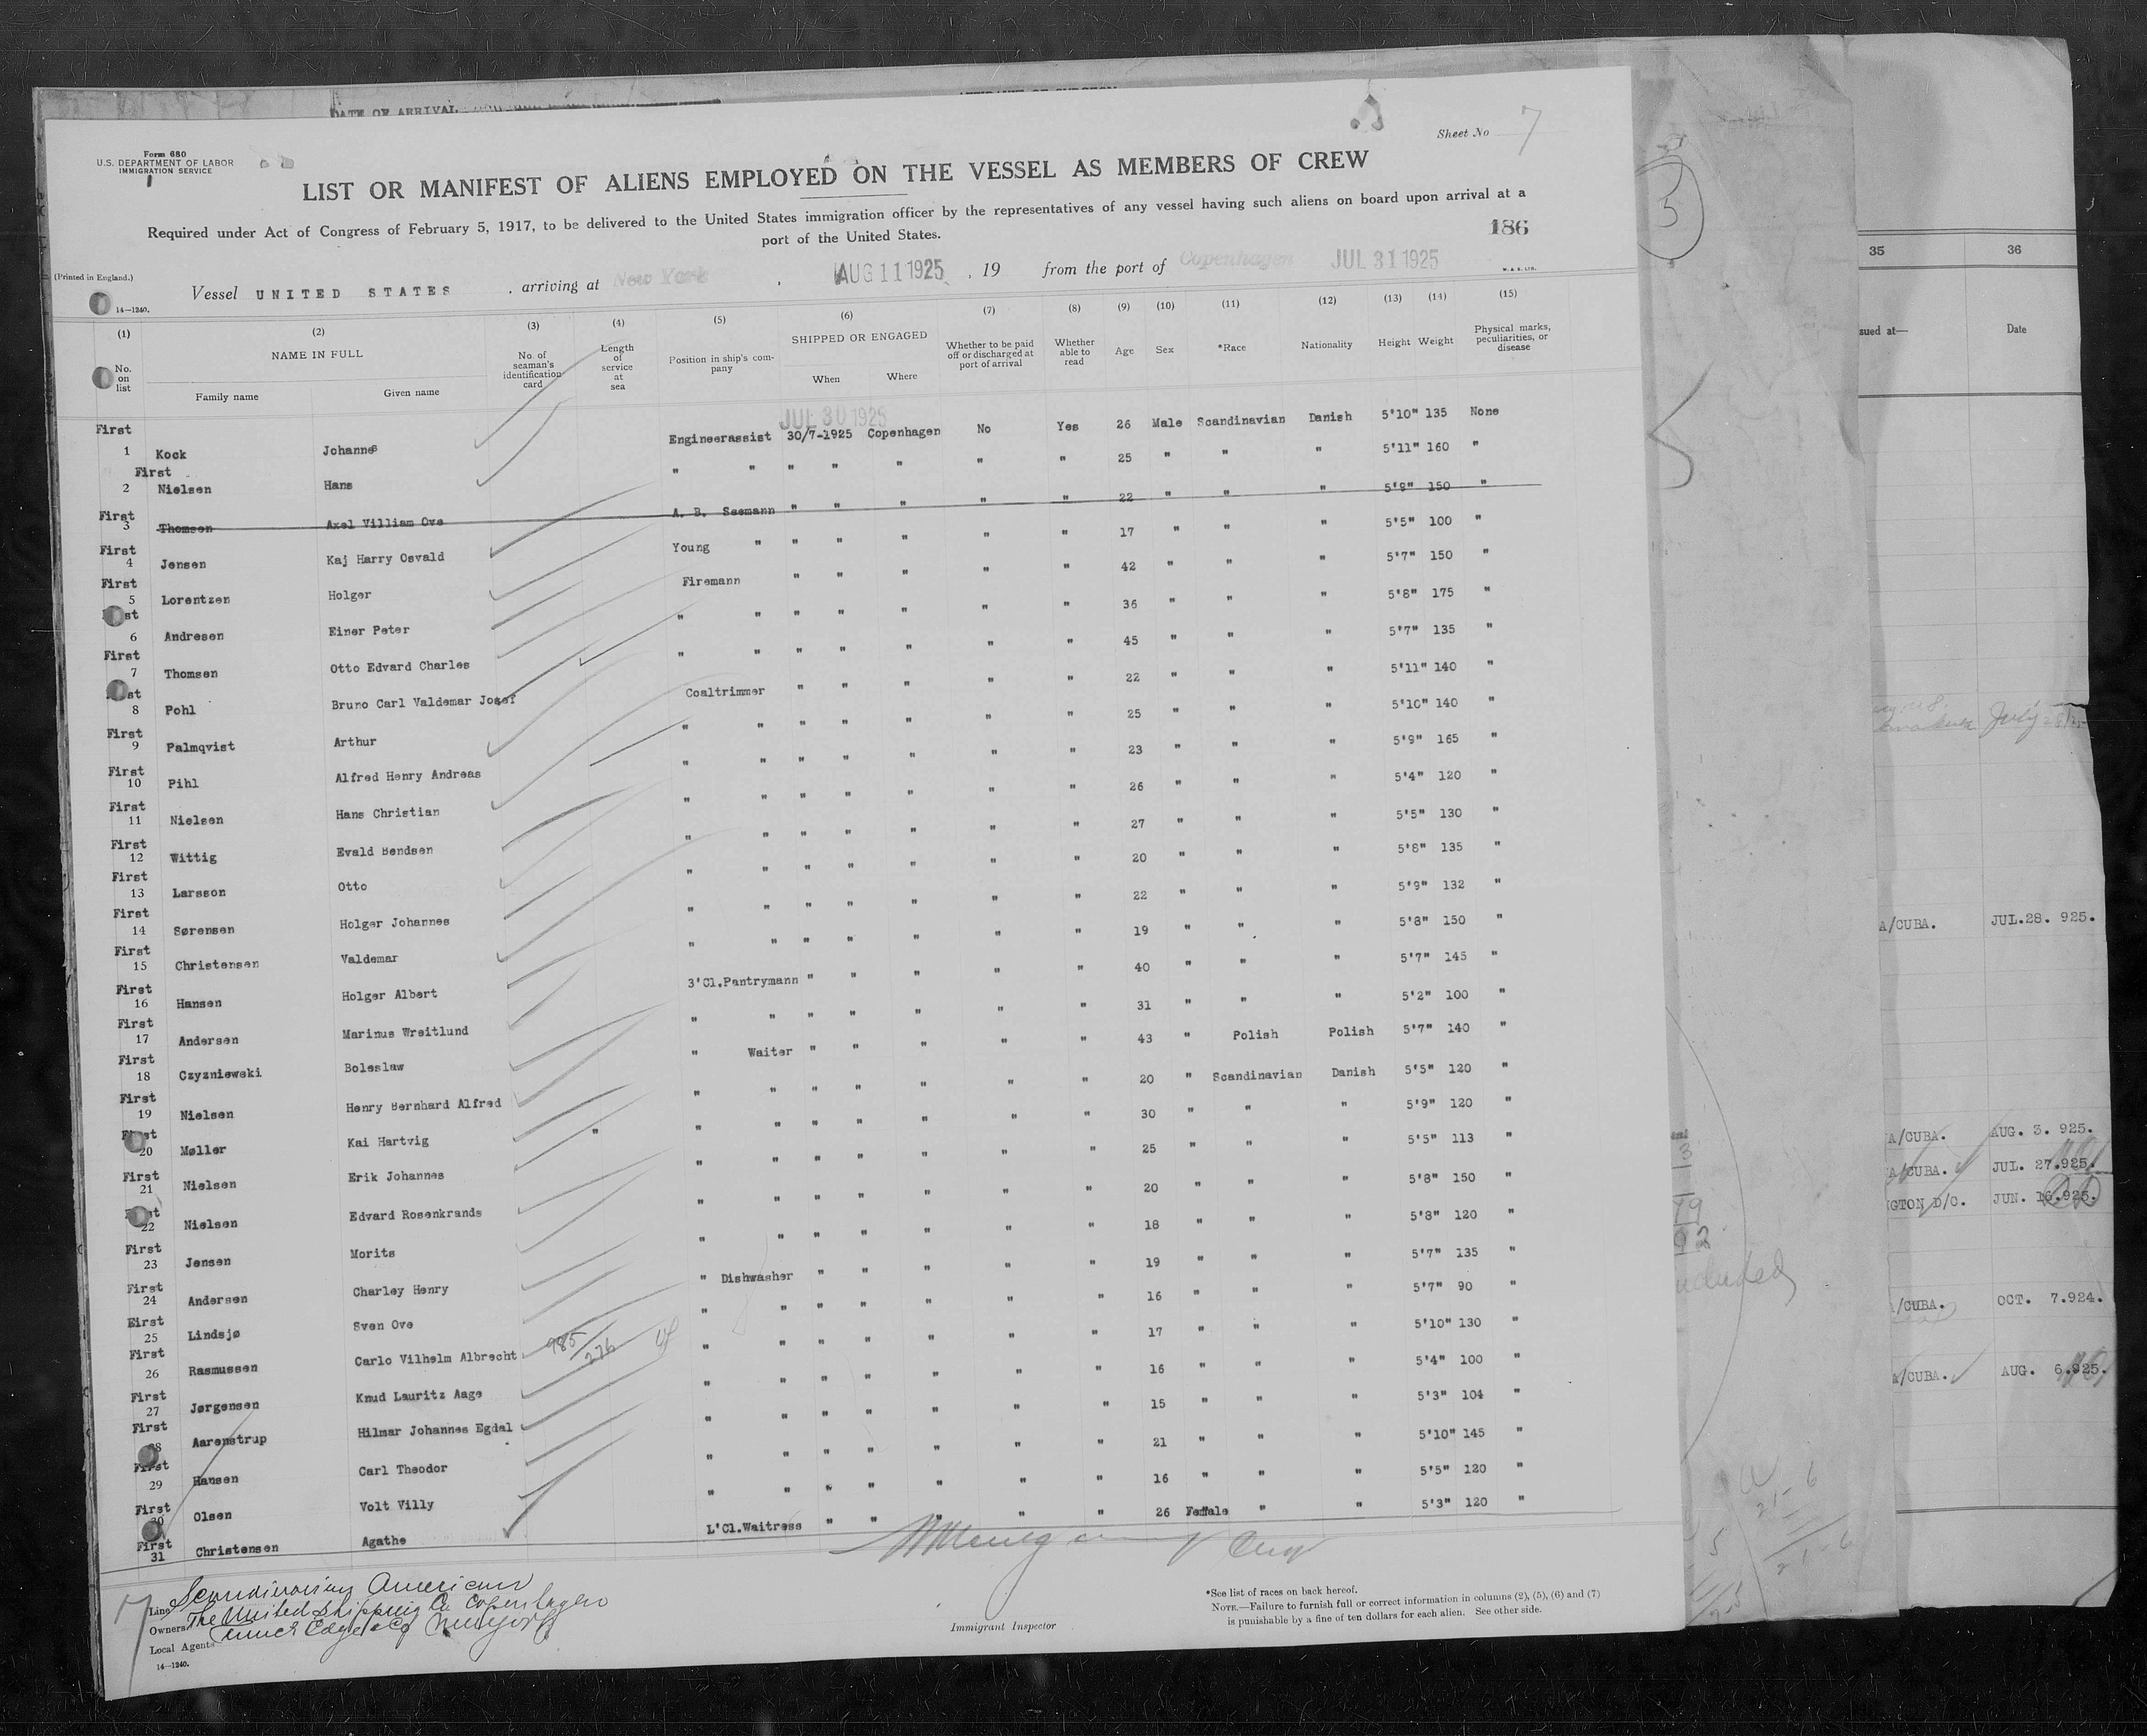 DATE OF ARRIVAL
Sheet No 7
Form 680
U.S. DEPARTMENT OF LABOR
IMMIGRATION SERVICE
LIST OR MANIFEST OF ALIENS EMPLOYED ON THE VESSEL AS MEMBERS OF CREW
Required under Act of Congress of February 5, 1917, to be delivered to the United States immigration officer by the representatives of any vessel having such aliens on board upon arrival at a
port of the United States.
186
(Printed in England.)
14—1240.
Vessel UNITED STATES , arriving at New York , AUG 11 1925 , 19 from the port of Copenhagen JUL 31 1925
W. & S. LTD.
(1) (2) (3) (4) (5) (6) (7) (8) (9) (10) (11) (12) (13) (14) (15)
No. on list NAME IN FULL Family name Given name No. of seaman's identification card Length of service at sea Position in ship's company SHIPPED OR ENGAGED When Where Whether to be paid off or discharged at port of arrival Whether able to read Age Sex *Race Nationality Height Weight Physical marks, peculiarities, or disease
JUL 30 1925
First 1 Kock Johannes Engineerassist 30/7-1925 Copenhagen No Yes 26 Male Scandinavian Danish 5'10" 135 None
First 2 Nielsen Hans " " " " " " " 25 " " " 5'11" 160 "
First 3 Thomsen Axel Villiam Ove A. B. Seemann " " " " " 22 " " " 5'8" 150 "
First 4 Jensen Kaj Harry Osvald Young " " " " " " 17 " " " 5'5" 100 "
First 5 Lorentzen Holger Firemann " " " " " 42 " " " 5'7" 150 "
First 6 Andresen Einer Peter " " " " " " " 36 " " " 5'8" 175 "
First 7 Thomsen Otto Edvard Charles " " " " " " " 45 " " " 5'7" 135 "
First 8 Pohl Bruno Carl Valdemar Josef Coaltrimmer " " " " " 22 " " " 5'11" 140 "
First 9 Palmqvist Arthur " " " " " " " 25 " " " 5'10" 140 "
First 10 Pihl Alfred Henry Andreas " " " " " " " 23 " " " 5'9" 165 "
First 11 Nielsen Hans Christian " " " " " " " 26 " " " 5'4" 120 "
First 12 Wittig Evald Bendsen " " " " " " " 27 " " " 5'5" 130 "
First 13 Larsson Otto " " " " " " " 20 " " " 5'8" 135 "
First 14 Sørensen Holger Johannes " " " " " " " 22 " " " 5'9" 132 "
First 15 Christensen Valdemar " " " " " " " 19 " " " 5'8" 150 "
First 16 Hansen Holger Albert 3'Cl.Pantrymann " " " " " 40 " " " 5'7" 145 "
First 17 Andersen Marinus Wreitlund " " " " " " " 31 " " " 5'2" 100 "
First 18 Czyzniewski Boleslaw " Waiter " " " " " 43 " Polish Polish 5'7" 140 "
First 19 Nielsen Henry Bernhard Alfred " " " " " " " 20 " Scandinavian Danish 5'5" 120 "
First 20 Møller Kai Hartvig " " " " " " " " 30 " " " 5'9" 120 "
First 21 Nielsen Erik Johannes " " " " " " " 25 " " " 5'5" 113 "
First 22 Nielsen Edvard Rosenkrands " " " " " " " 20 " " " 5'8" 150 "
First 23 Jensen Morits " " " " " " " 18 " " " 5'8" 120 "
First 24 Andersen Charley Henry " Dishwasher " " " " " 19 " " " 5'7" 135 "
First 25 Lindsjø Sven Ove " " " " " " " 16 " " " 5'7" 90 "
First 26 Rasmussen Carlo Vilhelm Albrecht 985/276 " " " " " " " 17 " " " 5'10" 130 "
First 27 Jørgensen Knud Lauritz Aage " " " " " " " 16 " " " 5'4" 100 "
First 28 Aarenstrup Hilmar Johannes Egdal " " " " " " " 15 " " " 5'3" 104 "
First 29 Hansen Carl Theodor " " " " " " " 21 " " " 5'10" 145 "
First 30 Olsen Volt Villy " " " " " " " 16 " " " 5'5" 120 "
First 31 Christensen Agathe L'Cl.Waitress " " " " " 26 Female " " 5'3" 120 "
Line Scandinavian American
Owners The United Shipping Co Copenhagen
Local Agents
14—1240.
Immigrant Inspector
*See list of races on back hereof.
NOTE.—Failure to furnish full or correct information in columns (2), (5), (6) and (7)
is punishable by a fine of ten dollars for each alien. See other side.
5
35 36
sued at— Date
July 28/25
A/CUBA. JUL.28. 925.
A/CUBA. AUG. 3. 925.
A/CUBA. JUL. 27.925.
GTON D/C. JUN. 16.925.
/CUBA. OCT. 7.924.
A/CUBA. AUG. 6.925.